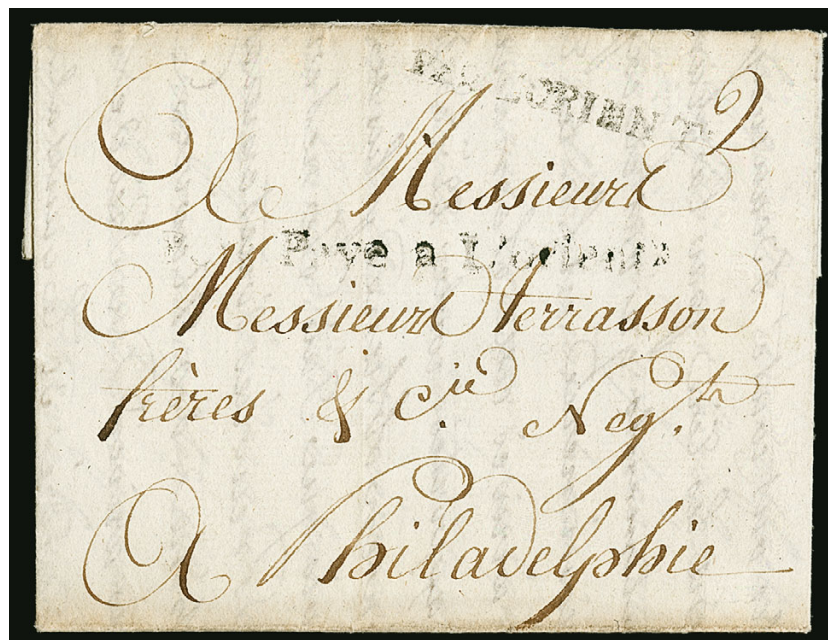 L'ORIENT
2
A Messieurs
Paye a L'orient
Messieurs terrasson
frères & C.ie Neg.ts
A Philadelphie